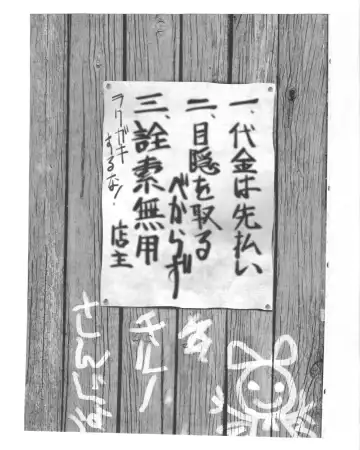 一、代金は先払い
二、目隠を取る
べからず
三、詮索無用
店主
ラクガキ
するな！
チルノ
さんじょう